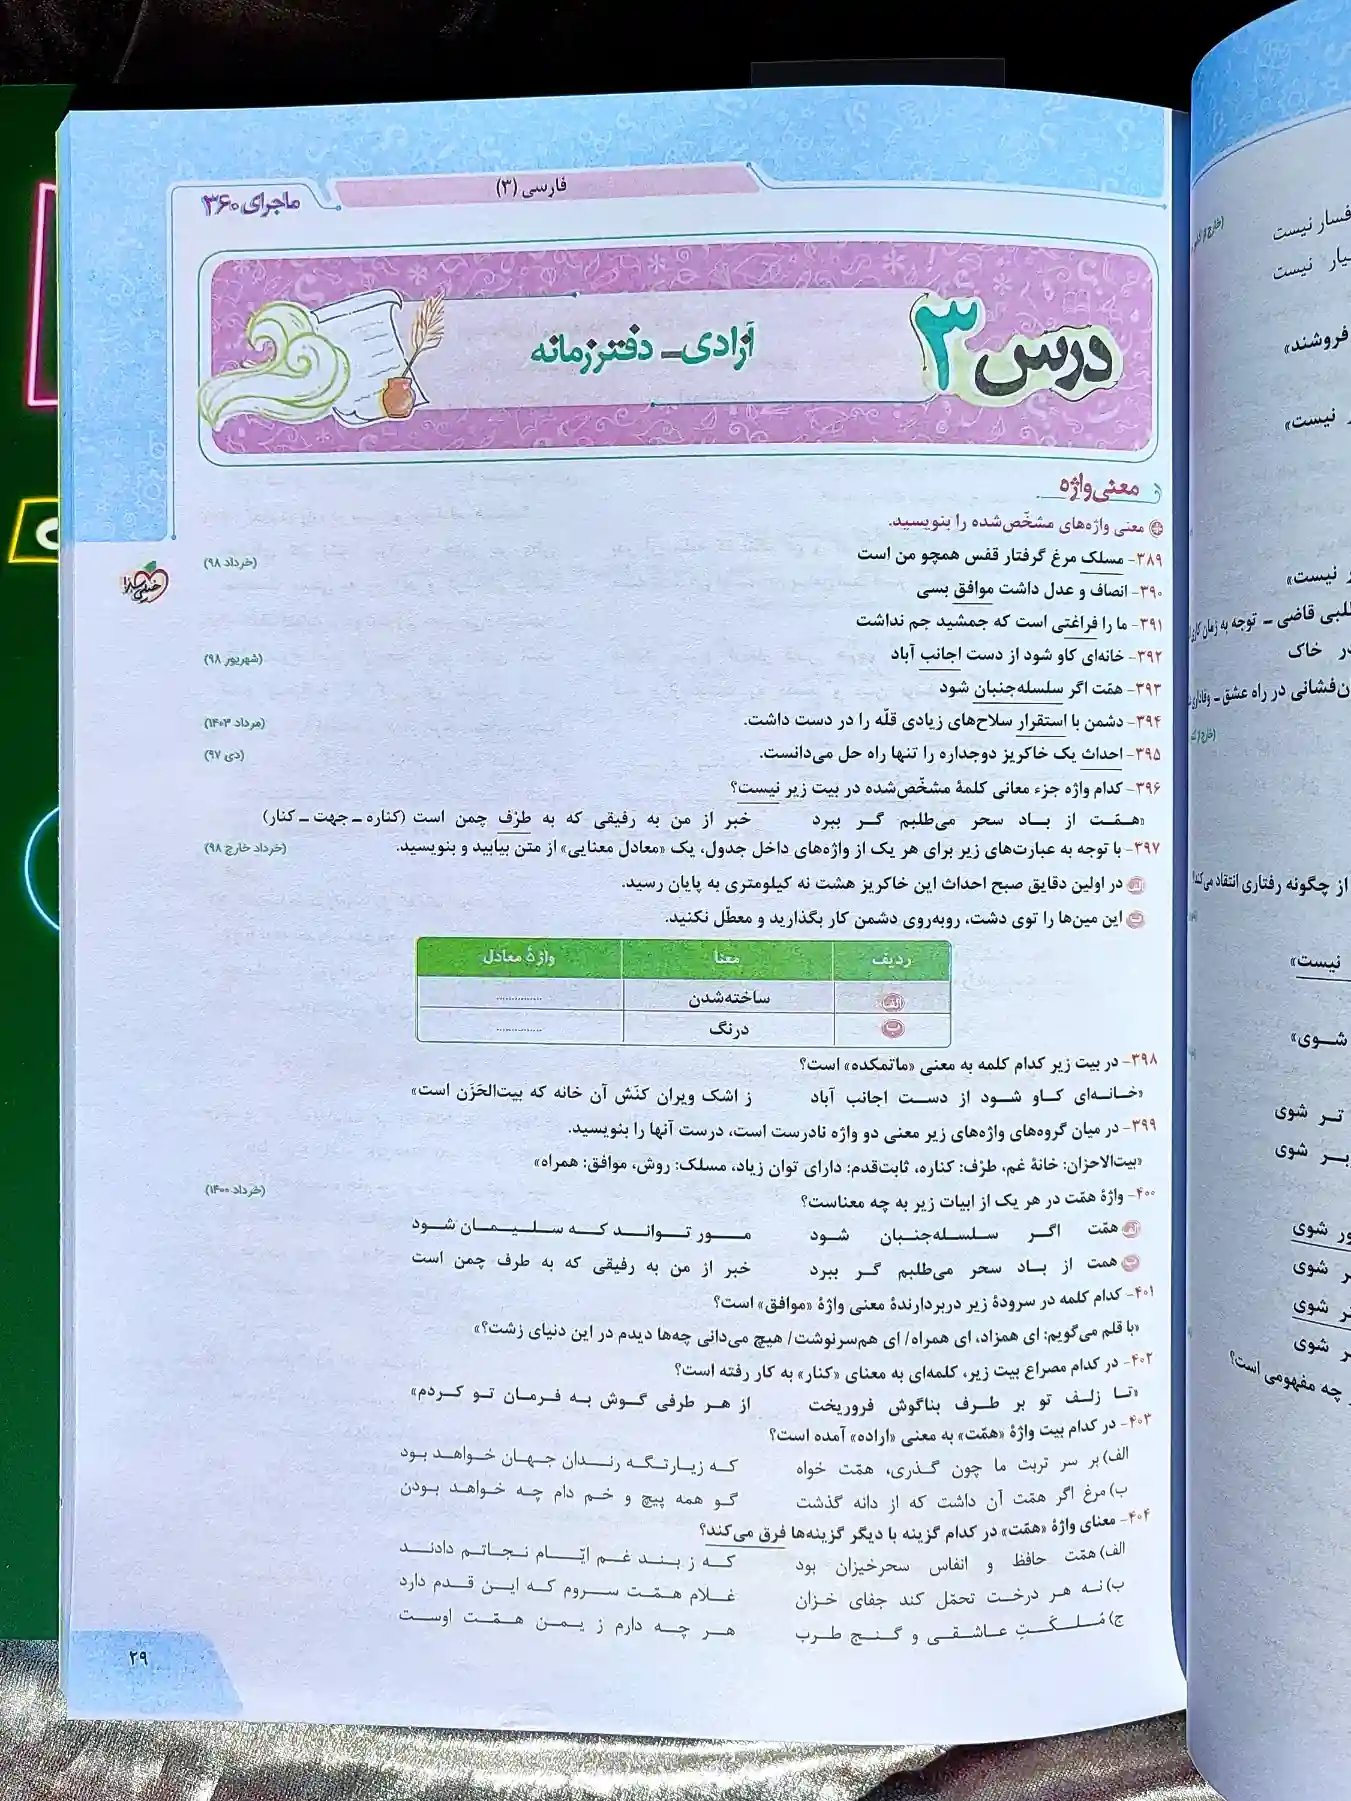 فارسی (۳)
ماجرای ۳۶۰
درس ۳
آزادی - دفتر زمانه
معنی واژه
معنی واژه‌های مشخّص‌شده را بنویسید.
۳۸۹- مسلک مرغ گرفتار قفس همچو من است (خرداد ۹۸)
خیلی سبز
۳۹۰- انصاف و عدل داشت موافق بسی
۳۹۱- ما را فراغتی است که جمشید جم نداشت
۳۹۲- خانه‌ای کاو شود از دست اجانب آباد (شهریور ۹۸)
۳۹۳- همّت اگر سلسله‌جنبان شود
۳۹۴- دشمن با استقرار سلاح‌های زیادی قلّه را در دست داشت. (مرداد ۱۴۰۳)
۳۹۵- احداث یک خاکریز دوجداره را تنها راه حل می‌دانست. (دی ۹۷)
۳۹۶- کدام واژه جزء معانی کلمهٔ مشخّص‌شده در بیت زیر نیست؟
«همّت از باد سحر می‌طلبم گر ببرد خبر از من به رفیقی که به طرْف چمن است (کناره - جهت - کنار)
۳۹۷- با توجه به عبارت‌های زیر برای هر یک از واژه‌های داخل جدول، یک «معادل معنایی» از متن بیابید و بنویسید. (خرداد خارج ۹۸)
الف در اولین دقایق صبح احداث این خاکریز هشت نه کیلومتری به پایان رسید.
ب این مین‌ها را توی دشت، روبه‌روی دشمن کار بگذارید و معطّل نکنید.
ردیف معنا واژهٔ معادل
الف ساخته‌شدن ..............
ب درنگ ..............
۳۹۸- در بیت زیر کدام کلمه به معنی «ماتمکده» است؟
«خانه‌ای کاو شود از دست اجانب آباد ز اشک ویران کنَش آن خانه که بیت‌الحَزَن است»
۳۹۹- در میان گروه‌های واژه‌های زیر معنی دو واژه نادرست است، درست آنها را بنویسید.
«بیت‌الاحزان: خانهٔ غم، طرْف: کناره، ثابت‌قدم: دارای توان زیاد، مسلک: روش، موافق: همراه»
۴۰۰- واژهٔ همّت در هر یک از ابیات زیر به چه معناست؟ (خرداد ۱۴۰۰)
الف همّت اگر سلسله‌جنبان شود مور تواند که سلیمان شود
ب همت از باد سحر می‌طلبم گر ببرد خبر از من به رفیقی که به طرف چمن است
۴۰۱- کدام کلمه در سرودهٔ زیر دربردارندهٔ معنی واژهٔ «موافق» است؟
«با قلم می‌گویم: ای همزاد، ای همراه/ ای هم‌سرنوشت/ هیچ می‌دانی چه‌ها دیدم در این دنیای زشت؟»
۴۰۲- در کدام مصراع بیت زیر، کلمه‌ای به معنای «کنار» به کار رفته است؟
«تا زلف تو بر طرف بناگوش فروریخت از هر طرفی گوش به فرمان تو کردم»
۴۰۳- در کدام بیت واژهٔ «همّت» به معنی «اراده» آمده است؟
الف) بر سر تربت ما چون گذری، همّت خواه که زیارتگه رندان جهان خواهد بود
ب) مرغ اگر همّت آن داشت که از دانه گذشت گو همه پیچ و خم دام چه خواهد بودن
۴۰۴- معنای واژهٔ «همّت» در کدام گزینه با دیگر گزینه‌ها فرق می‌کند؟
الف) همّت حافظ و انفاس سحرخیزان بود که ز بند غم ایّام نجاتم دادند
ب) نه هر درخت تحمّل کند جفای خزان غلام همّت سروم که این قدم دارد
ج) مُلکَتِ عاشقی و گنج طرب هر چه دارم ز یمن همّت اوست
۲۹
فسار نیست
نیست
فروشند»
نیست»
نیست»
طلبی قاضی - توجه به زمان
در خاک
در راه عشق -
از چگونه رفتاری انتقاد می‌کند؟
نیست»
شوی»
تر شوی
شوی
شوی
شوی
شوی
شوی
چه مفهومی است؟